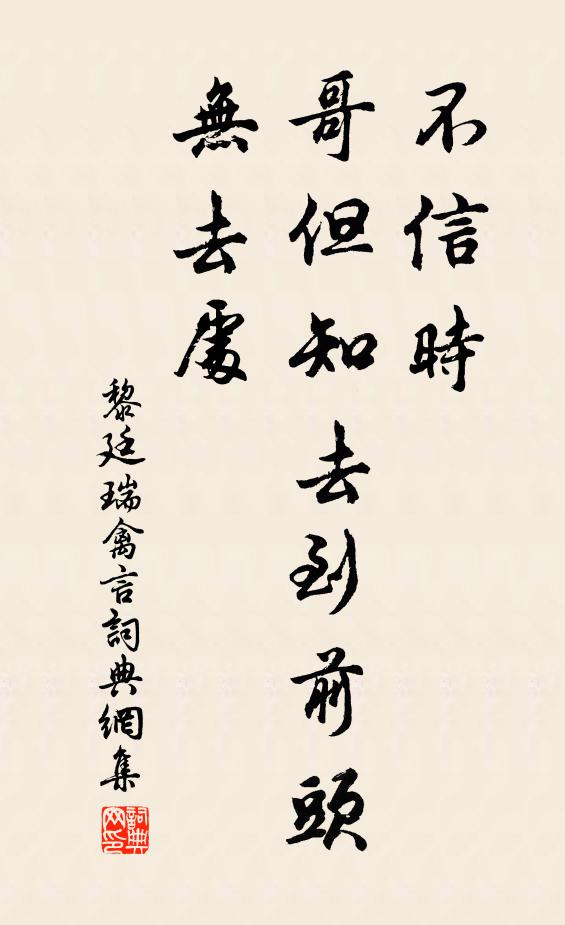 不信時
哥但知去到前頭
無去處
黎廷瑞禽言詞典網集
詞典网印